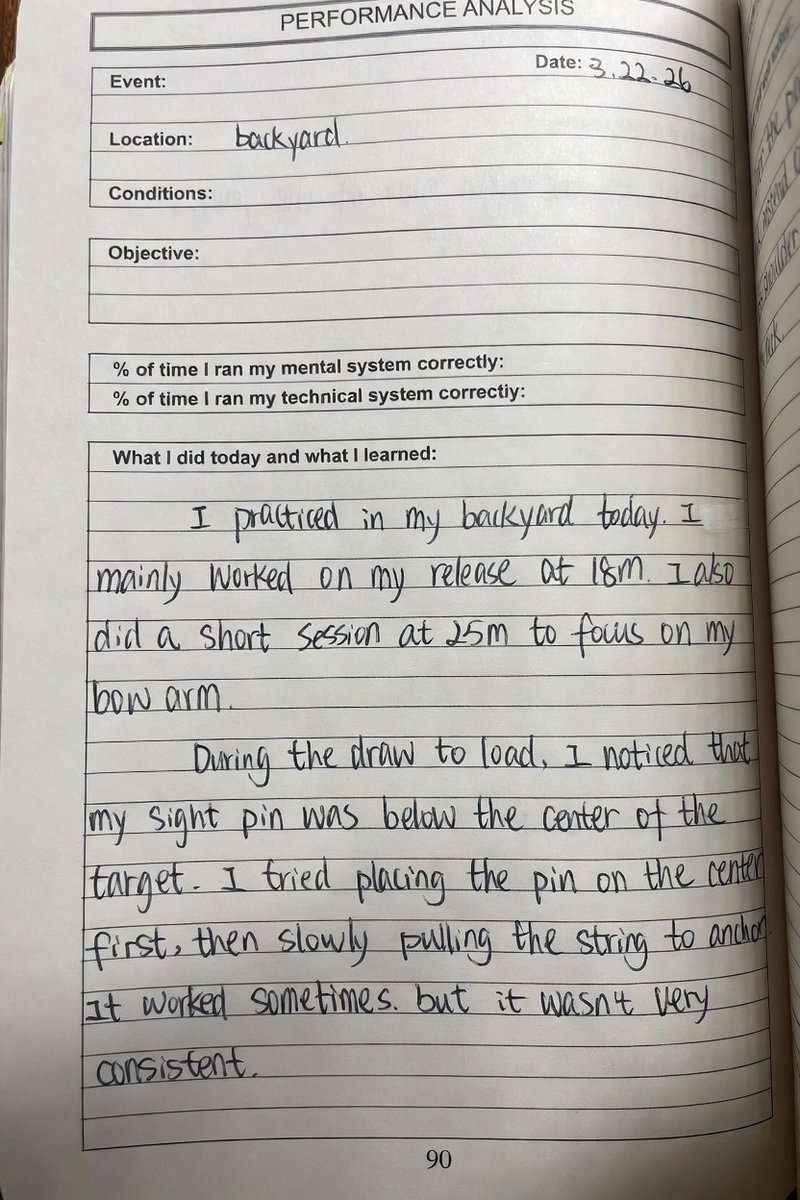 PERFORMANCE ANALYSIS
Event:
Date: 3.22.26
Location: backyard.
Conditions:
Objective:
% of time I ran my mental system correctly:
% of time I ran my technical system correctly:
What I did today and what I learned:
I practiced in my backyard today. I
mainly worked on my release at 18m. I also
did a short session at 25m to focus on my
bow arm.
During the draw to load, I noticed that
my sight pin was below the center of the
target. I tried placing the pin on the center
first, then slowly pulling the string to anchor.
It worked sometimes. but it wasn't very
consistent.
90